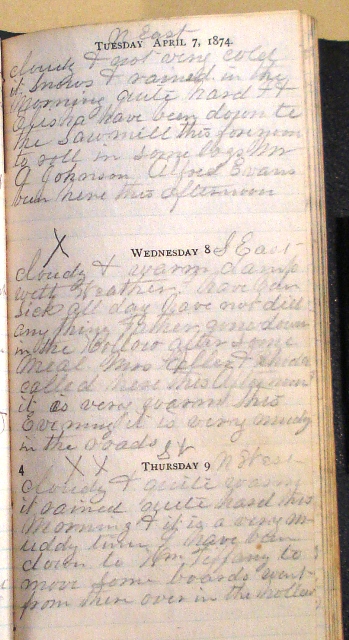 N East
TUESDAY APRIL 7, 1874.
Cloudy & not very cold
it snows & rained in the
Morning quite hard I &
have been down to
the Sawmill this forenoon
to roll in some logs Mr
Johnson Alfred Evans
been here this afternoon
X
WEDNESDAY 8 S East
Cloudy & warm damp
wett Weather have ben
Sick all day have not did
any thing Father gone down
in the Hollow after some
Meal Mrs &
called here this afternoon
it is very warm this
Evening it is very muddy
in the roads
4 X X THURSDAY 9 N West
Cloudy & quite warm
it rained quite hard this
Morning & it is a very m
uddy time I have been
down to Wm Tiffany to
move some boards went
from there over in the hollow